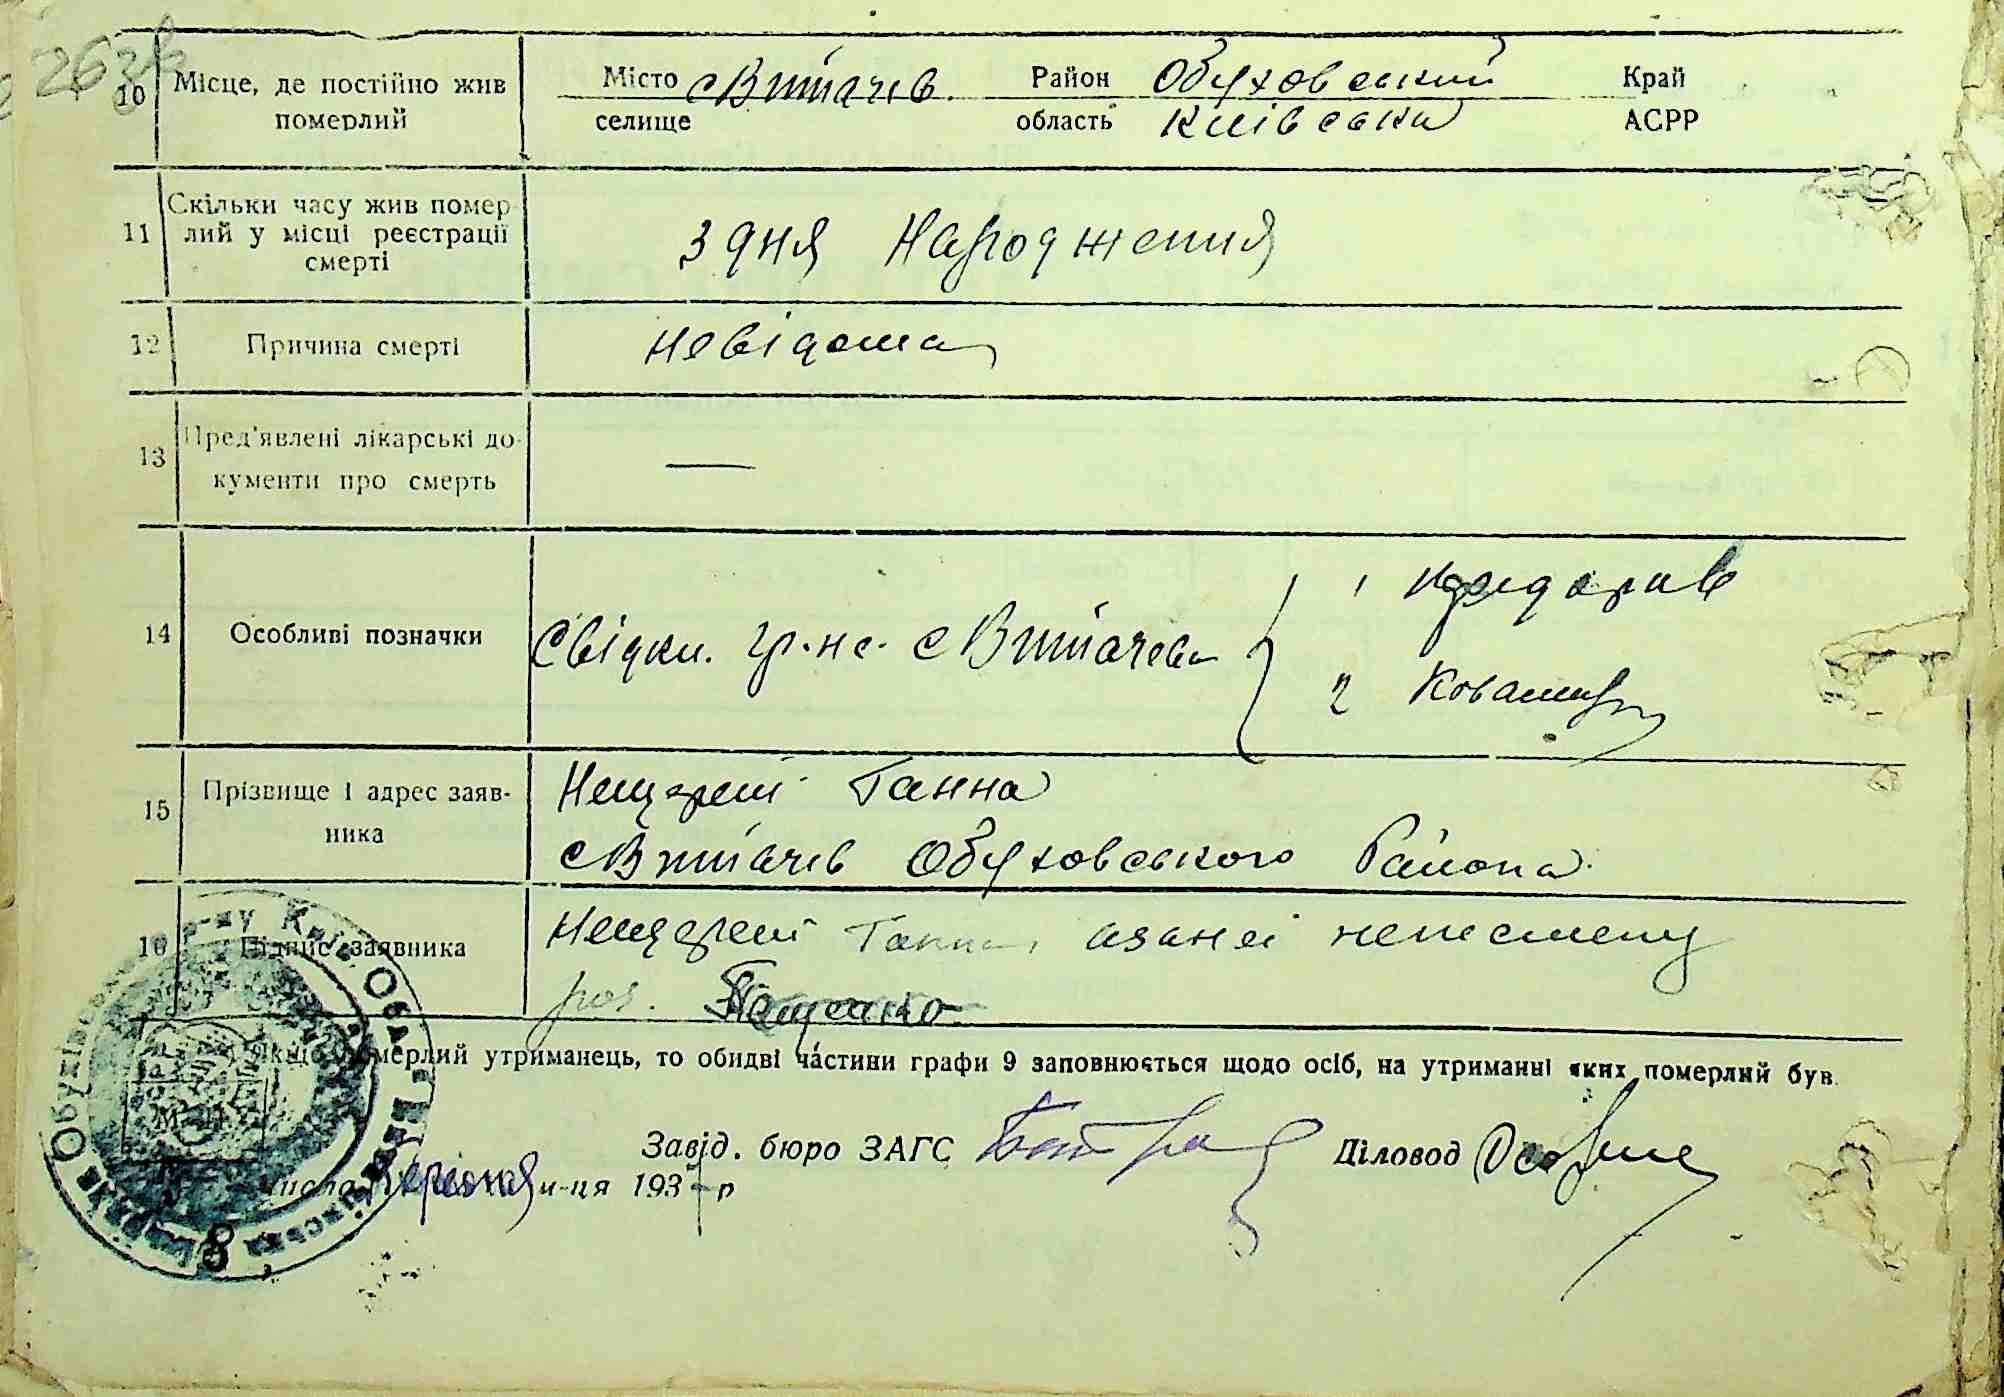 263
10 Місце, де постійно жив Місто с Витачев. Район Обуховський Край
померлий селище область Київська АСРР
11 Скільки часу жив помер
лий у місці реєстрації
смерті
з дня Народження
12 Причина смерті невідома
13 Пред'явлені лікарські до-
кументи про смерть
—
14 Особливі позначки Свідки. гр-не. с Витачева
1
2 Ковашир
15 Прізвище і адрес заяв-
ника
Нещерет Ганна
с Витачів Обуховського Района
16 Підпис заявника Нещерет Ганна,
рос.
Якщо померлий утриманець, то обидві частини графи 9 заповнюється щодо осіб, на утриманні яких померлий був
Завід. бюро ЗАГС Діловод
8 числа м-ця 193 р